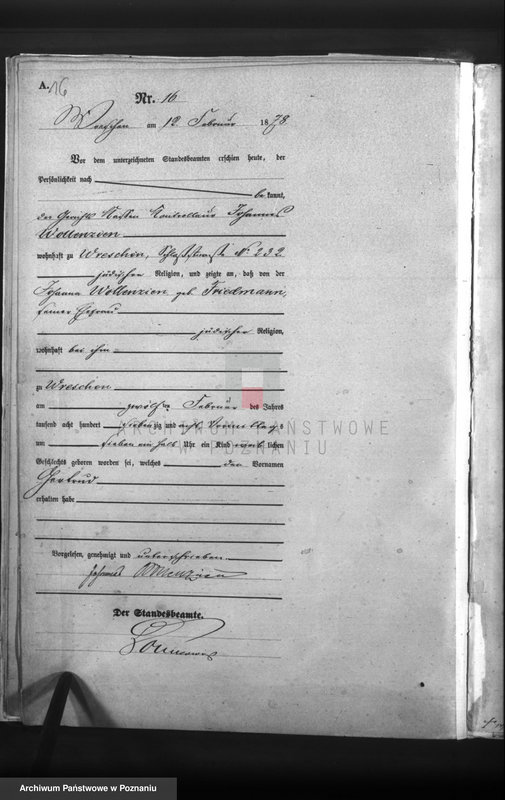 A. 16
Nr. 16
Wreschen am 12 Februar 1878
Vor dem unterzeichneten Standesbeamten erschien heute, der
Persönlichkeit nach
be kannt,
der Gerichts Kassen Kontrolleur Johannes
Wollenzien
wohnhaft zu Wreschen, No 232
jüdischer Religion, und zeigte an, daß von der
Johanna Wollenzien geb. Friedmann,
seiner Ehefrau
jüdischer Religion,
wohnhaft bei ihm
zu Wreschen
am zwölften Februar des Jahres
tausend acht hundert siebenzig und acht Vormittags
um sieben ein halb Uhr ein Kind weib lichen
Geschlechts geboren worden sei, welches den Vornamen
Gertrud
erhalten habe
Vorgelesen, genehmigt und unterschrieben.
Johannes Wollenzien
Der Standesbeamte.
ARCHIWUM PAŃSTWOWE
W POZNANIU
Archiwum Państwowe w Poznaniu